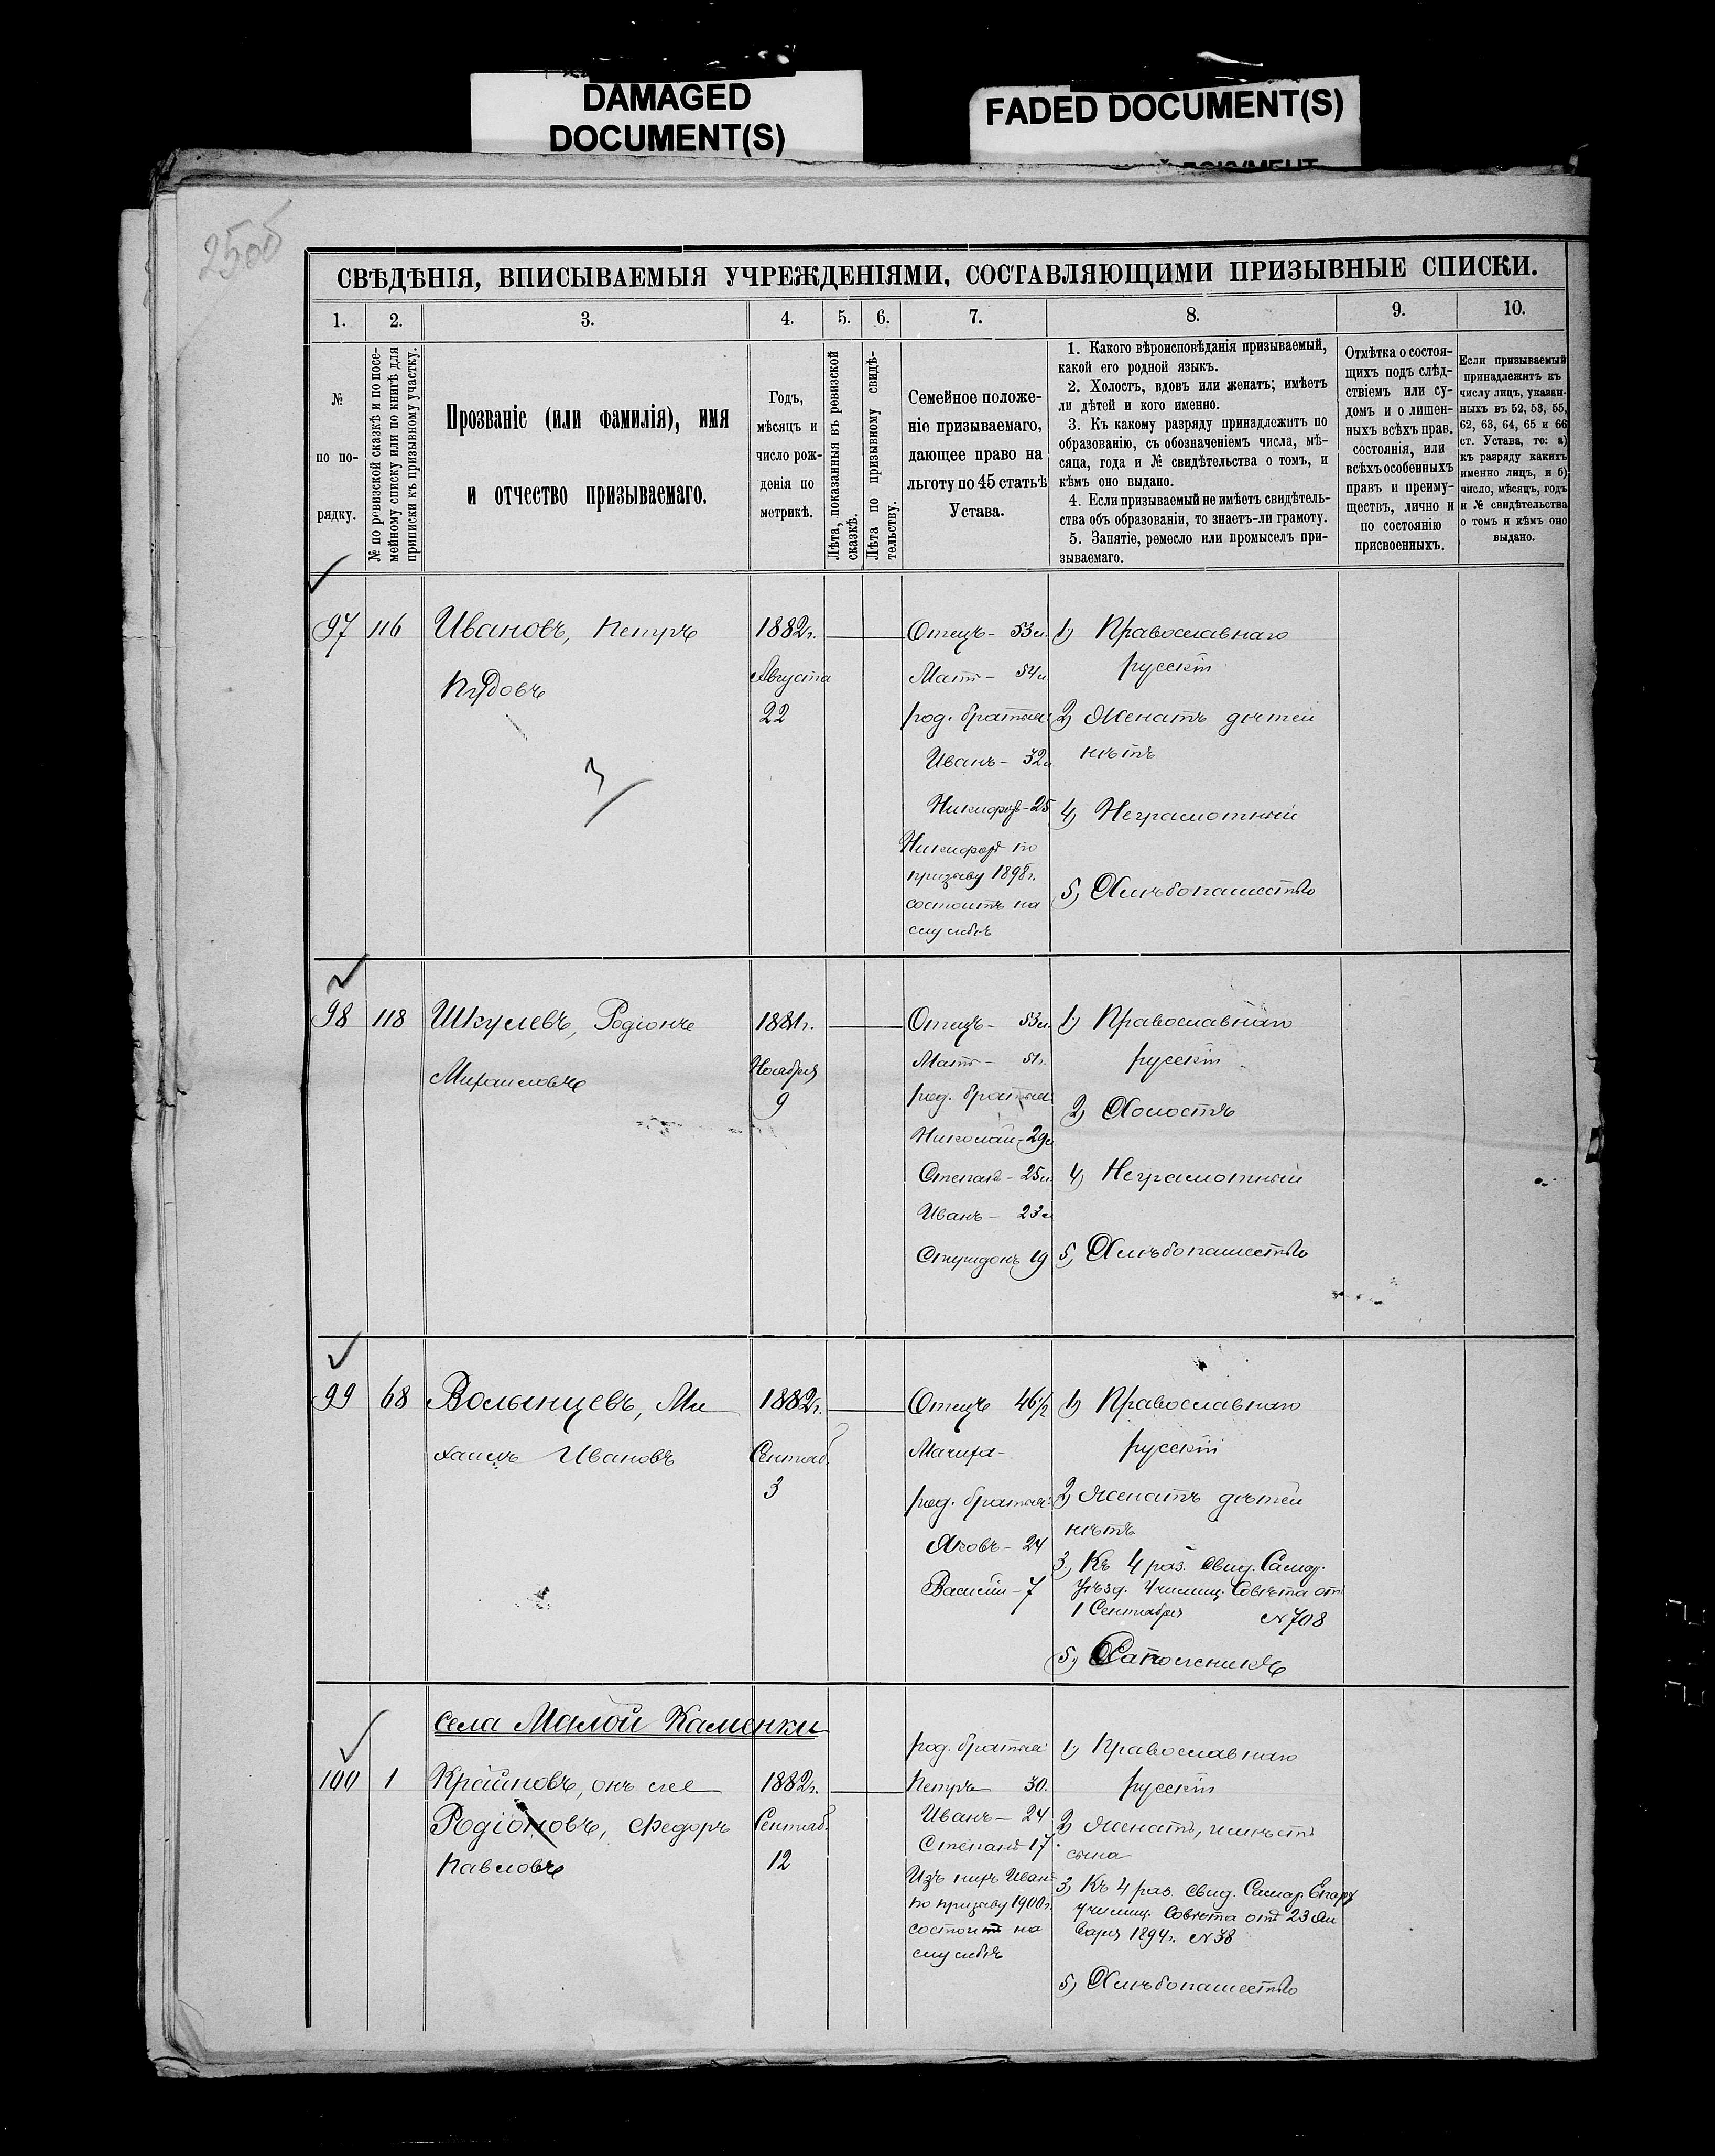 DAMAGED
DOCUMENT(S)
FADED DOCUMENT(S)
250б
СВѢДѢНІЯ, ВПИСЫВАЕМЫЯ УЧРЕЖДЕНІЯМИ, СОСТАВЛЯЮЩИМИ ПРИЗЫВНЫЕ СПИСКИ.
1. 2. 3. 4. 5. 6. 7. 8. 9. 10.
№
по по-
рядку.
№ по ревизской сказкѣ и по посе-
мейному списку или по книгѣ для
приписки къ призывному участку.
Прозваніе (или фамилія), имя
и отчество призываемаго.
Годъ,
мѣсяцъ и
число рож-
денія по
метрикѣ.
Лѣта, показанныя въ ревизской
сказкѣ.
Лѣта по призывному свидѣ-
тельству.
Семейное положе-
ніе призываемаго,
дающее право на
льготу по 45 статьѣ
Устава.
1. Какого вѣроисповѣданія призываемый,
какой его родной языкъ.
2. Холостъ, вдовъ или женатъ; имѣетъ
ли дѣтей и кого именно.
3. Къ какому разряду принадлежитъ по
образованію, съ обозначеніемъ числа, мѣ-
сяца, года и № свидѣтельства о томъ, и
кѣмъ оно выдано.
4. Если призываемый не имѣетъ свидѣтель-
ства объ образованіи, то знаетъ-ли грамоту.
5. Занятіе, ремесло или промыселъ при-
зываемаго.
Отмѣтка о состоя-
щихъ подъ слѣд-
ствіемъ или су-
домъ и о лишен-
ныхъ всѣхъ прав.
состоянія, или
всѣхъ особенныхъ
правъ и преиму-
ществъ, лично и
по состоянію
присвоенныхъ.
Если призываемый
принадлежитъ къ
числу лицъ, указан-
ныхъ въ 52, 53, 55,
62, 63, 64, 65 и 66
ст. Устава, то: а)
къ разряду какихъ
именно лицъ, и б)
число, мѣсяцъ, годъ
и № свидѣтельства
о томъ и кѣмъ оно
выдано.
97 116 Ивановъ, Петръ
1882г.
Августа
22
Отецъ - 53л
Мать - 54л
род. братья:
Иванъ - 32л
Никифоръ - 25
Никифоръ по
призыву 1898г.
состоитъ на
службѣ
1) Православнаго
русскій
2) Женатъ дѣтей
нѣтъ
4) Неграмотный
5) Хлѣбопашество
98 118 Шкулевъ, Родіонъ
Михаиловъ
1881г.
Ноября
9
Отецъ - 53л
Мать - 51г.
род. братья
Николай - 29л
Степанъ - 25л
Иванъ - 23л
Спиридонъ 19
1) Православнаго
русскій
2) Холостъ
4) Неграмотный
5) Хлѣбопашество
99 68 Волынцевъ, Ми
хаилъ Ивановъ
1882г.
Сентяб.
3
Отецъ 46½
Мачиха -
род. братья:
Яковъ - 24
Василій - 7
1) Православнаго
русскій
2) Женатъ дѣтей
нѣтъ
3) Къ 4 раз. свид. Самар.
Уѣзд. Училищ. Совѣта отъ
1 Сентября №708
5) Сапожникъ
села Малой Каменки
100 1 Крайновъ, онъ же
Родіоновъ, Федоръ
Павловъ
1882г.
Сентяб.
12
род. братья:
Петръ 30.
Иванъ - 24
Степанъ 17
Изъ нихъ Иванъ
по призыву 1900г.
состоитъ на
службѣ
1) Православнаго
русскій
2) Женатъ, имѣетъ
сына
3) Къ 4 раз. свид. Самар. Епарх
училищ. Совѣта отъ 23 Ян
варя 1894г. №38
5) Хлѣбопашество